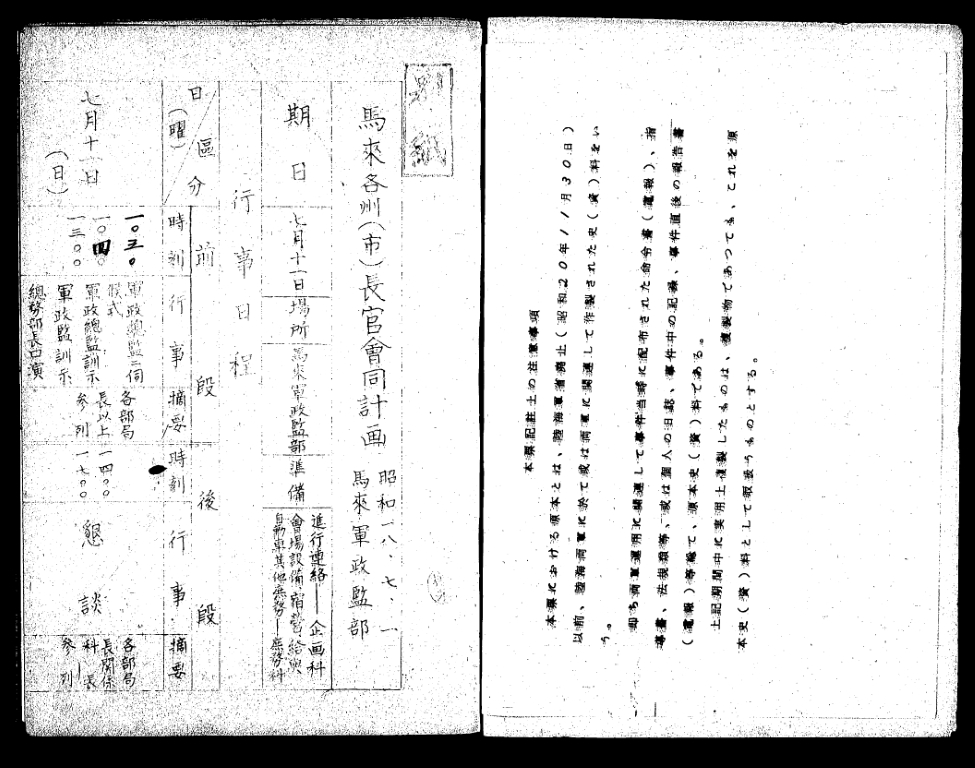 本票記註上の注意事項
本票における原本とは、陸海軍省廃止(昭和20年11月30日)
以前、陸海両軍に於て或は両軍に関連して作製された史(資)料をい
う。
即ち両軍運用に関連して事件当時に配布された命令書(電報)、指
導書、法規類等、或は個人の日誌、事件中の記録、事件直後の報告書
(電報)等総て、原本史(資)料である。
上記期間中に実用上複製したものは、複製物であつても、これを原
本史(資)料として取扱うものとする。
別紙
馬來各州(市)長官會同計画
昭和一八、七、一
馬來軍政監部
期日
七月十一日
場所
馬來軍政監部
準備
進行連絡―企画科
會場設備、宿営給與
自動車其他庶務―庶務科
行事日程
日(曜)
區分
前段
後段
時刻
行事
摘要
時刻
行事
摘要
七月十一日
(日)
一〇三〇
一〇四〇
一三〇〇
軍政總監ニ伺
候式
軍政總監訓示
軍政監訓示
總務部長口演
各部局
長以上
参列
一四〇〇
一七〇〇
懇談
各部局
長関係
科長
参列